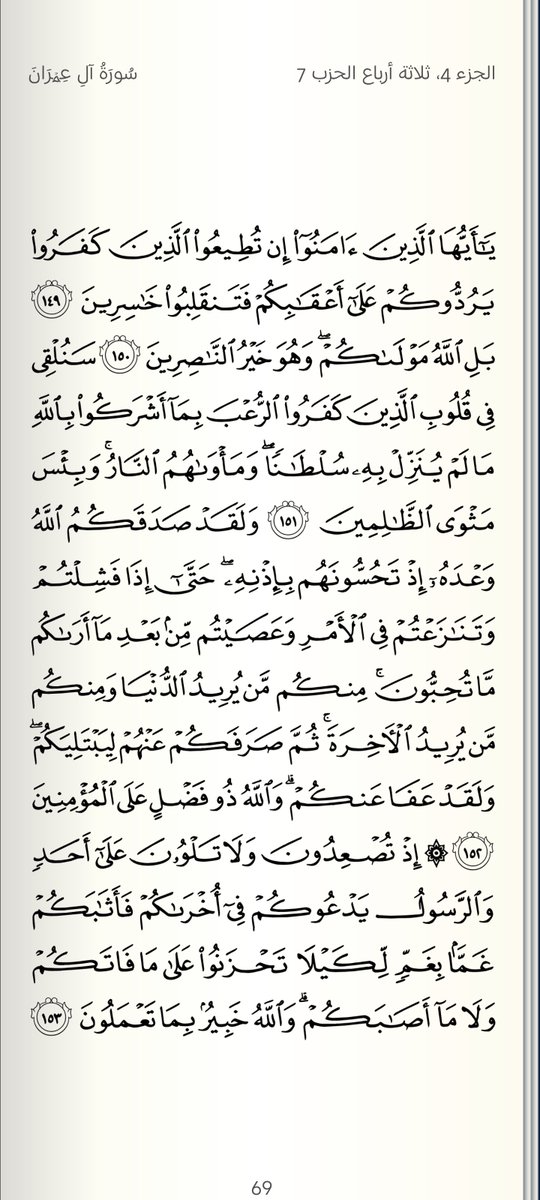 الجزء 4، ثلاثة أرباع الحزب 7 سُورَةُ آلِ عِمۡرَانَ
يَٰٓأَيُّهَا ٱلَّذِينَ ءَامَنُوٓاْ إِن تُطِيعُواْ ٱلَّذِينَ كَفَرُواْ
يَرُدُّوكُمۡ عَلَىٰٓ أَعۡقَٰبِكُمۡ فَتَنقَلِبُواْ خَٰسِرِينَ ١٤٩
بَلِ ٱللَّهُ مَوۡلَىٰكُمۡۖ وَهُوَ خَيۡرُ ٱلنَّٰصِرِينَ ١٥٠ سَنُلۡقِي
فِي قُلُوبِ ٱلَّذِينَ كَفَرُواْ ٱلرُّعۡبَ بِمَآ أَشۡرَكُواْ بِٱللَّهِ
مَا لَمۡ يُنَزِّلۡ بِهِۦ سُلۡطَٰنٗاۖ وَمَأۡوَىٰهُمُ ٱلنَّارُۚ وَبِئۡسَ
مَثۡوَى ٱلظَّٰلِمِينَ ١٥١ وَلَقَدۡ صَدَقَكُمُ ٱللَّهُ
وَعۡدَهُۥٓ إِذۡ تَحُسُّونَهُم بِإِذۡنِهِۦۖ حَتَّىٰٓ إِذَا فَشِلۡتُمۡ
وَتَنَٰزَعۡتُمۡ فِي ٱلۡأَمۡرِ وَعَصَيۡتُم مِّنۢ بَعۡدِ مَآ أَرَىٰكُم
مَّا تُحِبُّونَۚ مِنكُم مَّن يُرِيدُ ٱلدُّنۡيَا وَمِنكُم
مَّن يُرِيدُ ٱلۡأٓخِرَةَۚ ثُمَّ صَرَفَكُمۡ عَنۡهُمۡ لِيَبۡتَلِيَكُمۡۖ
وَلَقَدۡ عَفَا عَنكُمۡۗ وَٱللَّهُ ذُو فَضۡلٍ عَلَى ٱلۡمُؤۡمِنِينَ
١٥٢ ۞ إِذۡ تُصۡعِدُونَ وَلَا تَلۡوُۥنَ عَلَىٰٓ أَحَدٖ
وَٱلرَّسُولُ يَدۡعُوكُمۡ فِيٓ أُخۡرَىٰكُمۡ فَأَثَٰبَكُمۡ
غَمَّۢا بِغَمّٖ لِّكَيۡلَا تَحۡزَنُواْ عَلَىٰ مَا فَاتَكُمۡ
وَلَا مَآ أَصَٰبَكُمۡۗ وَٱللَّهُ خَبِيرُۢ بِمَا تَعۡمَلُونَ ١٥٣
69